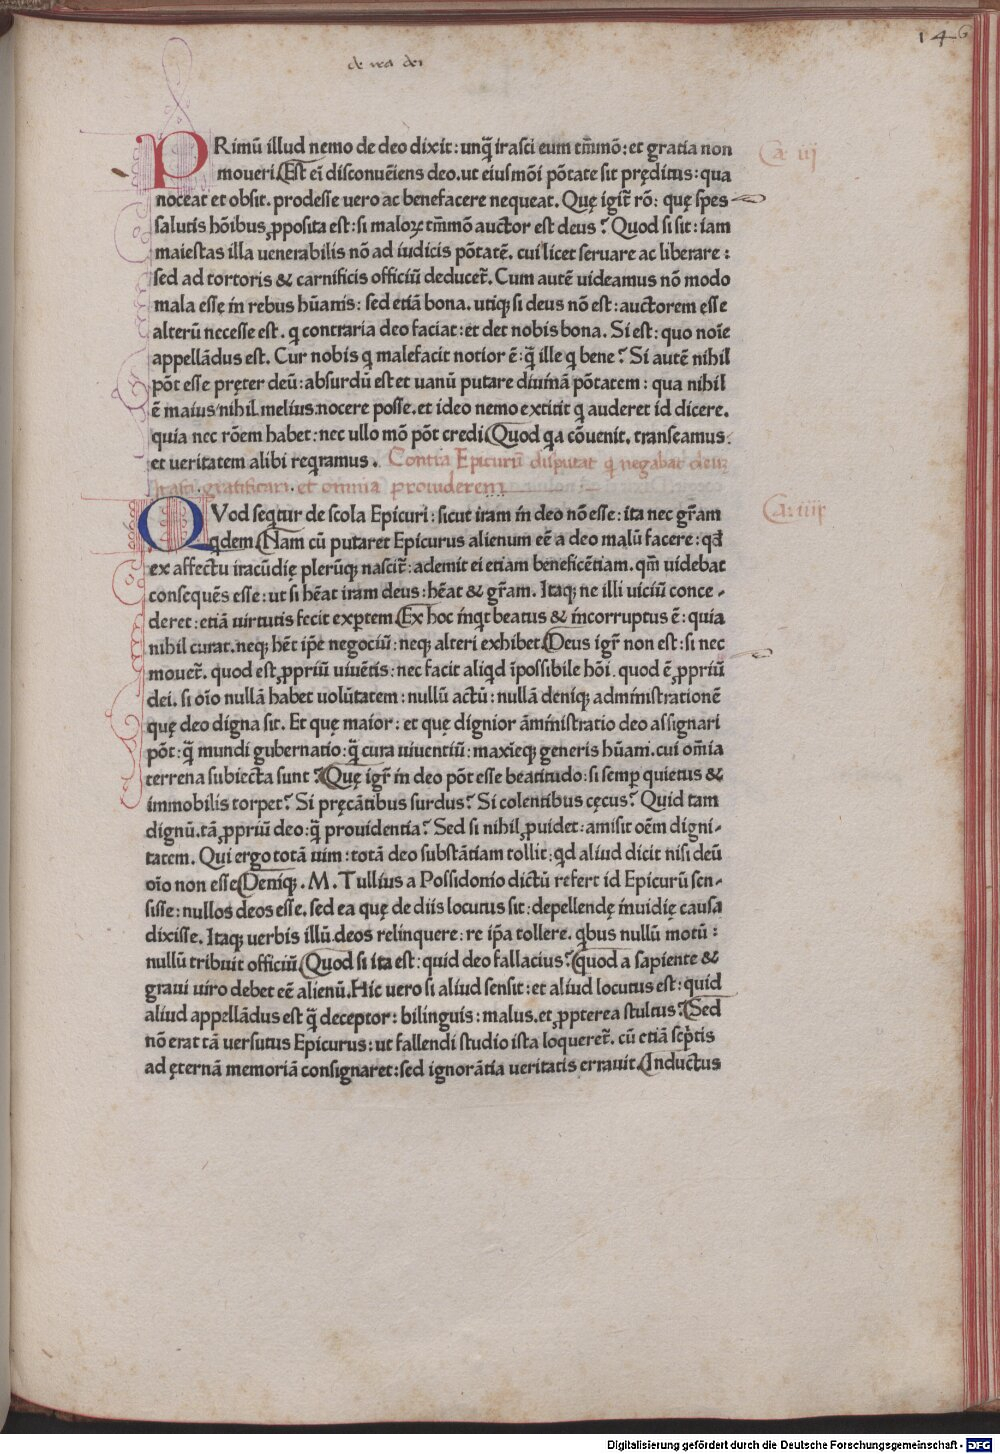 146
de ira dei
PRimū illud nemo de deo dixit: unq̄ irasci eum tm̄mō: et gratia non
moueri. Est ei̅ disconuēiens deo. ut eiusmōi pōtate sit pręditus: qua
noceat et obsit. prodesse uero ac benefacere nequeat. Quę igit̄ rō: quę spes
salutis hōibus ꝓposita est: si maloꝝ tm̄mō auctor est deus? Quod si sit: iam
maiestas illa uenerabilis nō ad iudicis pōtatē. cui licet seruare ac liberare:
sed ad tortoris & carnificis officiū deducet̄. Cum autē uideamus nō modo
mala esse in rebus hūanis: sed etiā bona. utiqꝫ si deus nō est: auctorem esse
alterū necesse est. q contraria deo faciat: et det nobis bona. Si est: quo noīe
appellādus est. Cur nobis q malefacit notior ē: q̄ ille q bene? Si autē nihil
pōt esse pręter deū: absurdū est et uanū putare diuinā pōtatem: qua nihil
ē maius nihil melius: nocere posse. et ideo nemo extitit q auderet id dicere.
quia nec rōem habet: nec ullo mō pōt credi. Quod qa cōuenit. transeamus:
et ueritatem alibi reqramus. Contra Epicurū disputat q negabat deūm
irasci gratificari et omnia prouiderem
Ca: iij
QVod seqtur de scola Epicuri: sicut iram in deo nō esse: ita nec gr̄am
qdem. Nam cū putaret Epicurus alienum eē a deo malū facere: qd̄
ex affectu iracūdię plerūqꝫ nascit̄: ademit ei etiam beneficētiam. qm̄ uidebat
consequēs esse: ut si hēat iram deus: hēat & gr̄am. Itaqꝫ ne illi uiciū conce-
deret: etiā uirtutis fecit exꝑtem. Ex hoc inqt beatus & incorruptus ē: quia
nihil curat. neqꝫ hēt ip̄e negociū: neqꝫ alteri exhibet. Deus igr̄ non est: si nec
mouet̄. quod est ꝓpriū uiuētis: nec facit aliqd īpossibile hōi. quod ē ꝓpriū
dei. si oīo nullā habet uolūtatem: nullū actū: nullā deniqꝫ administrationē
quę deo digna sit. Et quę maior: et quę dignior āministratio deo assignari
pōt: q̄ mundi gubernatio: q̄ cura uiuentiū: maxīeqꝫ generis hūani. cui om̄ia
terrena subiecta sunt? Quę igr̄ in deo pōt esse beatitudo: si semꝑ quietus &
immobilis torpet? Si pręcātibus surdus? Si colentibus cęcus? Quid tam
dignū. tā ꝓpriū deo: q̄ prouidentia? Sed si nihil ꝓuidet: amisit oēm digni-
tatem. Qui ergo totā uim: totā deo substātiam tollit: qd aliud dicit nisi deū
oīo non esse. Deniqꝫ. M. Tullius a Possidonio dictū refert id Epicurū sen-
sisse: nullos deos esse. sed ea quę de diis locutus sit: depellendę inuidię causa
dixisse. Itaqꝫ uerbis illū deos relinquere: re ip̄a tollere. qbus nullū motū:
nullū tribuit officiū. Quod si ita est: quid deo fallacius? quod a sapiente &
graui uiro debet eē alienū. Hic uero si aliud sensit: et aliud locutus est: quid
aliud appellādus est q̄ deceptor: bilinguis: malus. et ꝓpterea stultus? Sed
nō erat tā uersutus Epicurus: ut fallendi studio ista loqueret̄. cū etiā scꝑtis
ad ęternā memoriā consignaret: sed ignorātia ueritatis errauit. Inductus
Ca: iiij
Digitalisierung gefördert durch die Deutsche Forschungsgemeinschaft - DFG